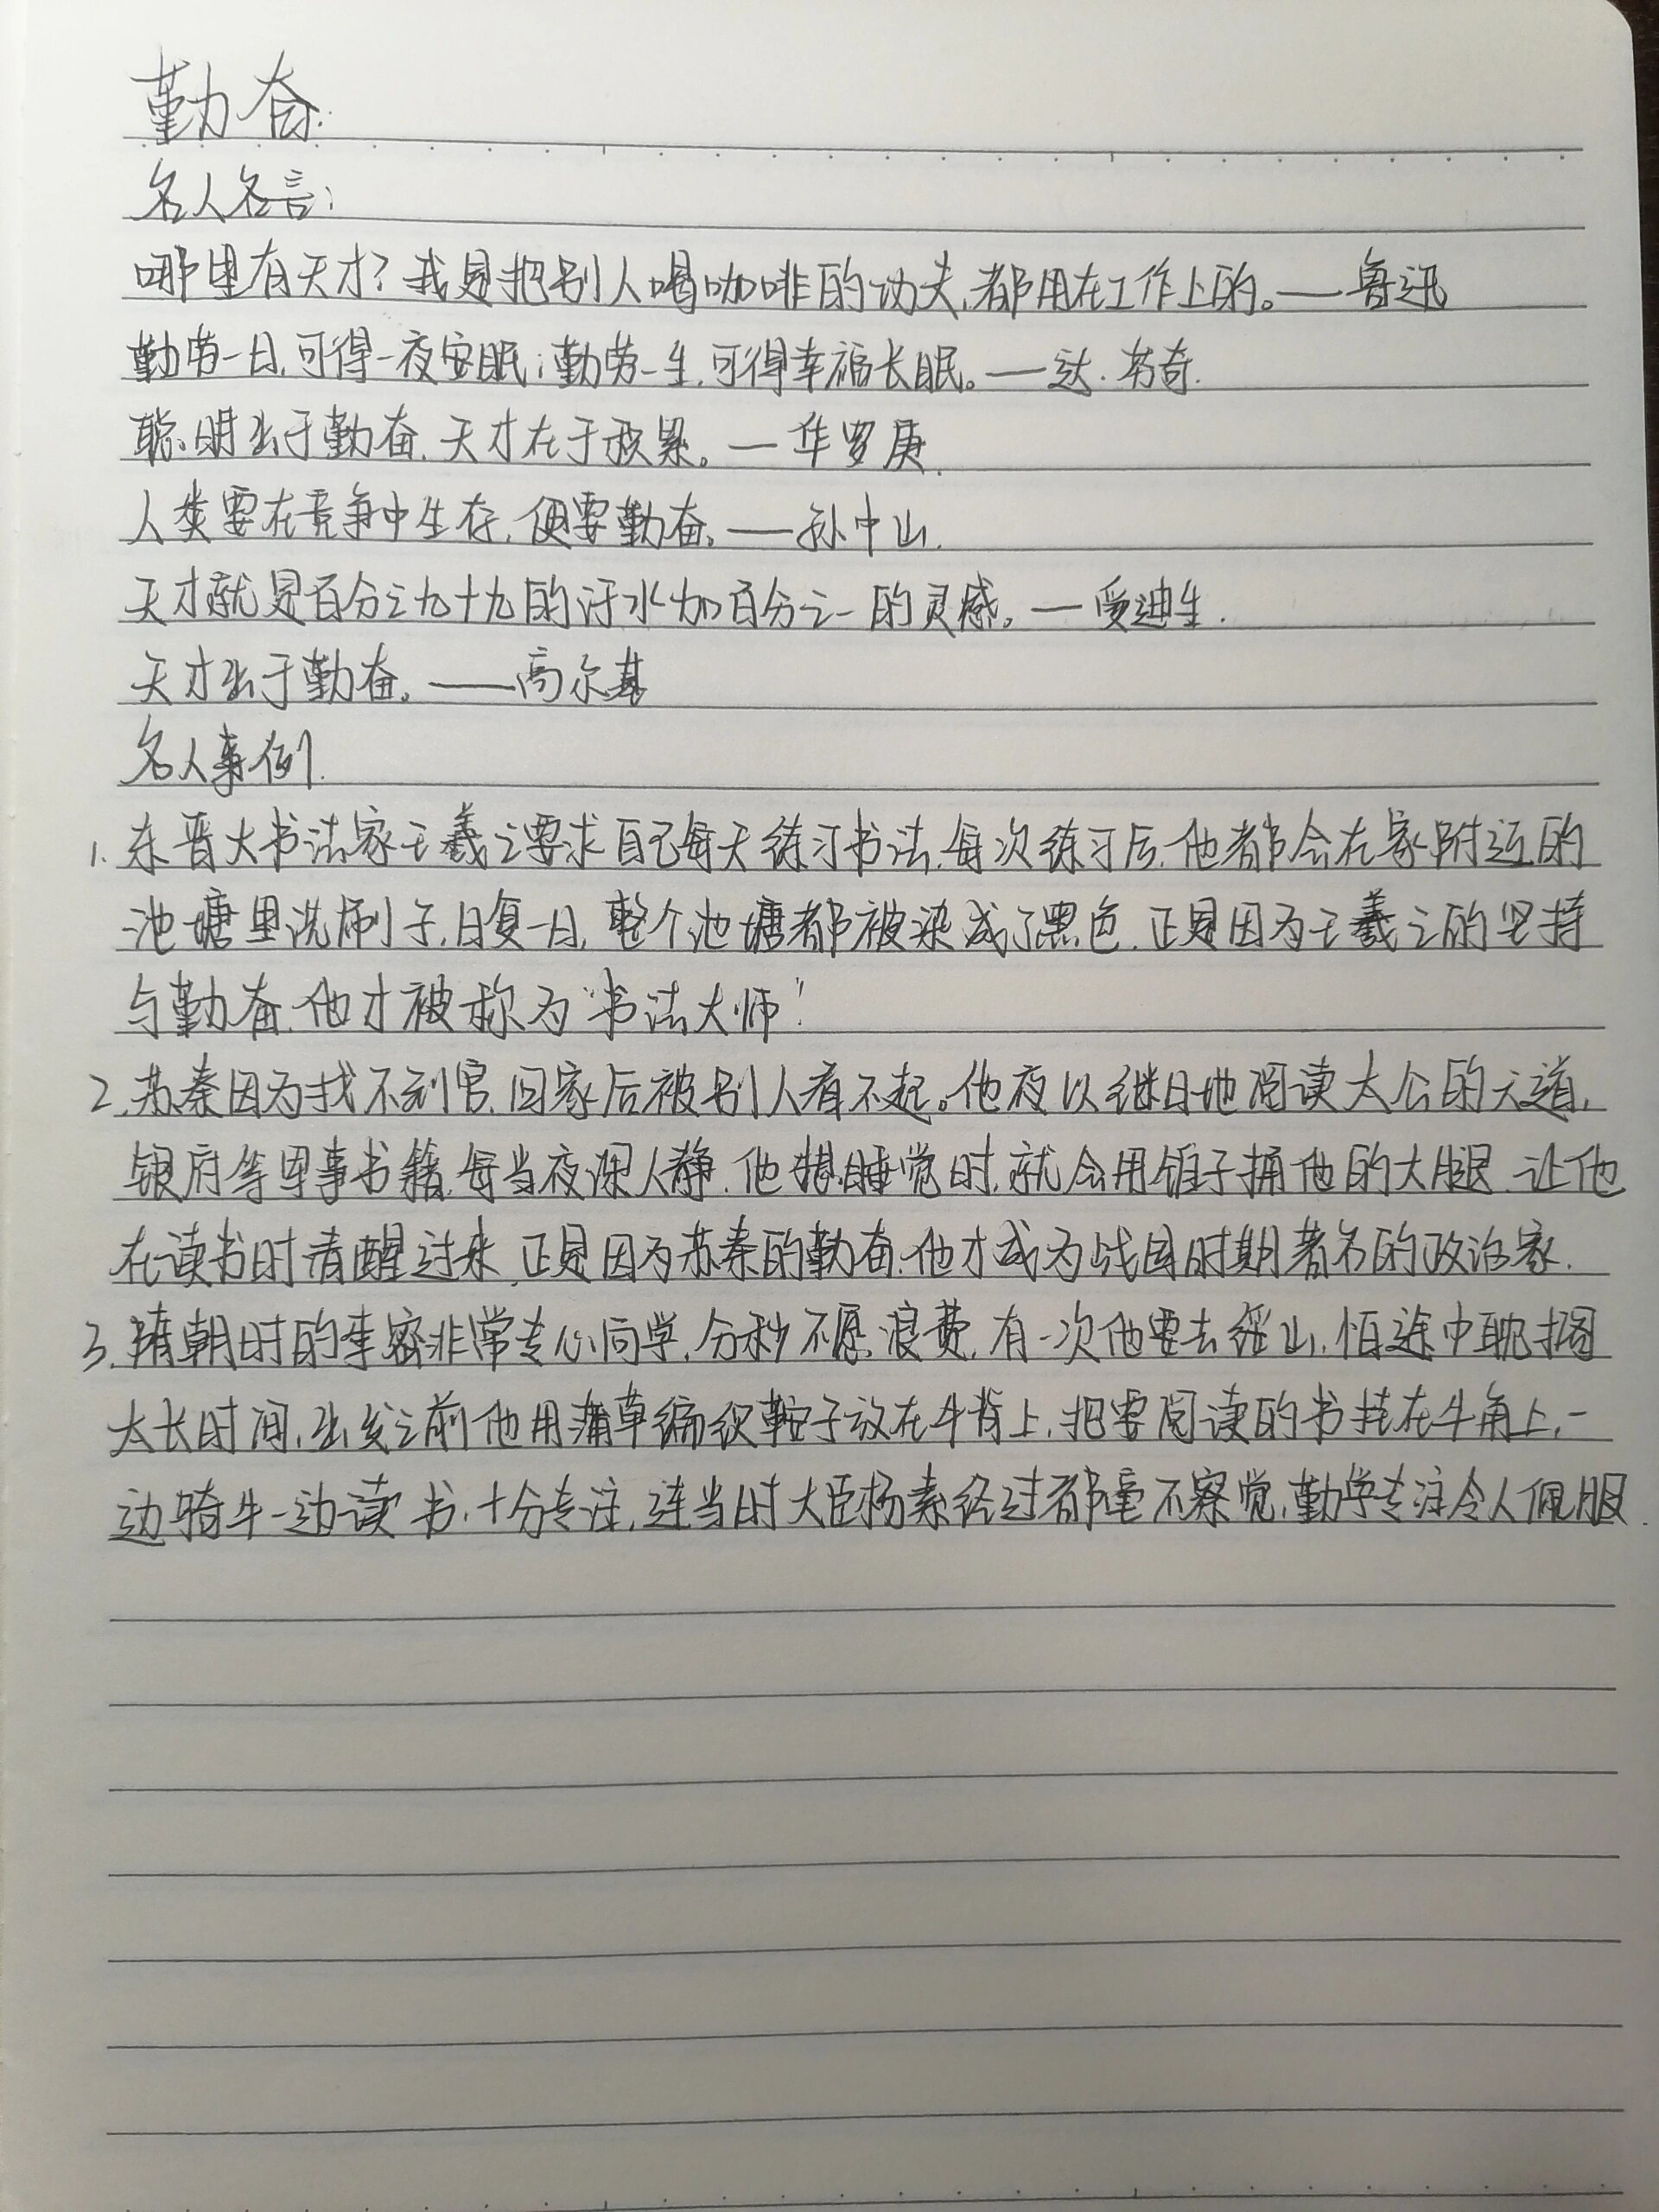 勤奋:
名人名言:
哪里有天才?我是把别人喝咖啡的功夫,都用在工作上的。——鲁迅
勤劳一日,可得一夜安眠;勤劳一生,可得幸福长眠。——达·芬奇.
聪明出于勤奋,天才在于积累。—华罗庚.
人类要在竞争中生存,便要勤奋。——孙中山.
天才就是百分之九十九的汗水加百分之一的灵感。—爱迪生.
天才出于勤奋。——高尔基
名人事例.
1.东晋大书法家王羲之要求自己每天练习书法,每次练习后,他都会在家附近的
池塘里洗刷子,日复一日,整个池塘都被染成了黑色.正是因为王羲之的坚持
与勤奋.他才被称为"书法大师"
2.苏秦因为找不到官,回家后被别人看不起。他夜以继日地阅读太公的天道,
银府等军事书籍,每当夜深人静.他想睡觉时,就会用锥子捅他的大腿.让他
在读书时清醒过来.正是因为苏秦的勤奋.他才成为战国时期著名的政治家.
3.隋朝时的李密非常专心向学,分秒不愿浪费,有一次他要去缑山,怕途中耽搁
太长时间,出发之前他用蒲草编织鞍子放在牛背上,把要阅读的书挂在牛角上,一
边骑牛一边读书,十分专注,连当时大臣杨素经过都毫不察觉,勤学专注令人佩服.